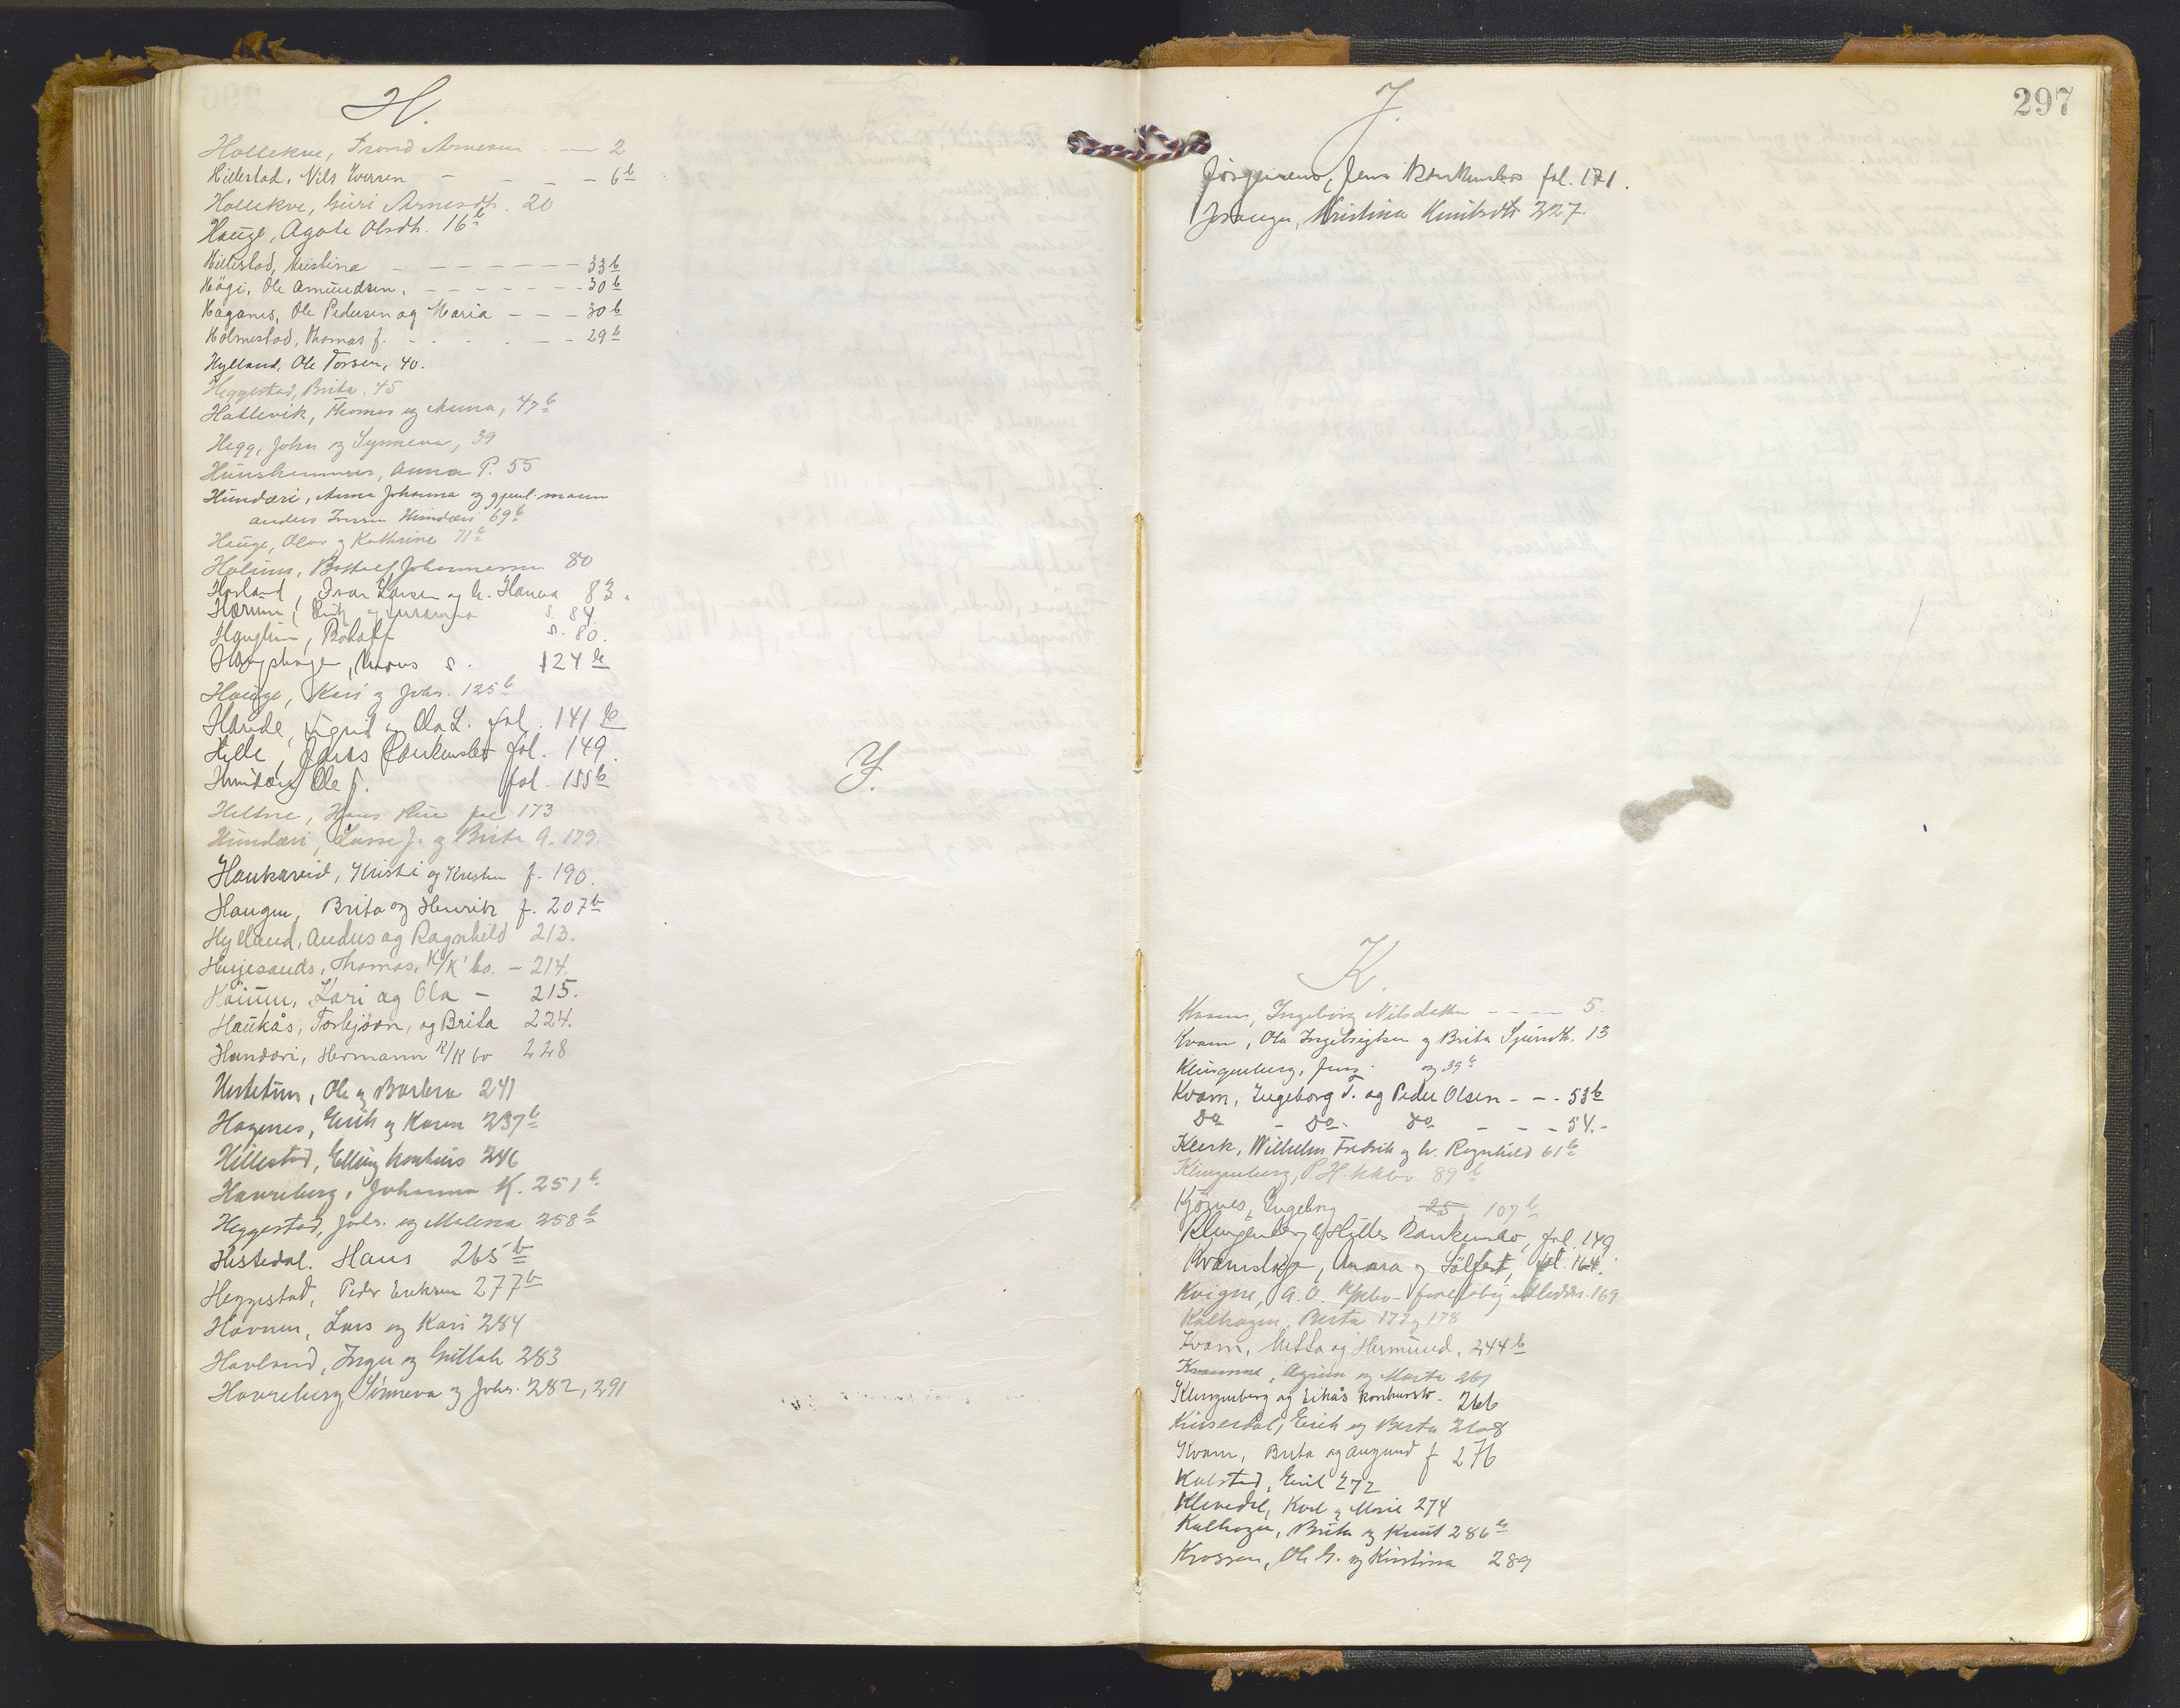 H.
Hollekve, Trond Arnesen - — 2
Hillestad, Nils Iversen - - - - 6b
Hollekve, Guri Arnesdtr. 20
Hauge, Agate Olsdtr. 16b
Hillestad, Kristina - - - - - - - 33b
Högi, Ole Amundsen, - - - - - - - 30b
Haganes, Ole Pedersen og Maria - - - 30b
Holmestad, Thomas J. - - - - - - 29b
Hylland, Ole Torsen, 40.
Heggestad, Brita, 45
Hatlevik, Thomas og Anna, 47b
Hegg, John og Synneva, 39
Anna P. 55
Hundæri, Anna Johanna og gjenl. mann
Anders Iversen Hundæri 69b
Hauge, Olav og Kathrine 71b
Holum, Botolf Johannessen 80
Horland, Ivar Larsen og h. Hanna 83.
s. 84.
Botolf s. 80.
s. 124b
Hauge, Kari og Johs. 125b
Sigrid og Ola L. fol. 141b
Hylle, Konkursbo fol. 149.
Hundæri, Ole J. fol. 155b
Heltne, Hans fol 173
Hundæri, Lasse J. og Brita A. 179.
Haukareid, Kristi og Kristen f. 190.
Haugen, Brita og Henrik f. 207b
Hylland, Anders og Ragnhild 213.
Thomas, K/K' bo. - 214.
Kari og Ola - 215.
Haukås, Torbjörn, og Brita 224.
Hundæri, Hermann K/K bo 228
Hestetun, Ole og Barbra 241
Hagenes, Erik og Karen 237b
Hillestad, Elling konkurs 246
Havreberg, Johanna K. 251b
Heggestad, Johs. og Malena 258b
Histedal. Hans 265b
Heggestad, Peder Eriksen 277b
Lars og Kari 284
Havland, Inga og Guttak 283
Havreberg, Sønneva og Johs. 282, 291
Y.
J.
297
Jørgensens, Jens Konkursbo fol. 171.
Kristina Knutsdtr 227.
K.
Kvam, Ingeborg Nilsdatter - - - - 5.
Kvam, Ola Ingebrigtsen og Brita Sjursdtr. 13
Klingenberg, Jens og 39b
Kvam, Ingeborg T. og Peder Olsen - - - 53b
Do - Do - Do - - - 54.-
Klerk, Wilhelm Fredrik og h. Ragnhild 61b
Klingenberg, P. H. kkbo 89b
Kjörnes, Ingeborg 25, 107b
Klingenberg & Hylles Konkursbo, fol. 149
og Sölfest, fol. 164.
Kvigne, A. O. K/kbo - foreløbig utloddn. 169
Kalhagen, Berta 177 og 178
Kvam, Metta og Hermund, 244b
og Marta 261
Klingenberg og Eikås konkursbo - 266
Kinserdal, Erik og Berta 268
Kvam, Brita og Augund f 276
Kalstad, Emil 272
Klevedal, Karl og Marie 274
Kalhagen, Brita og Knut 286b
Krossen, Ole G. og Kristina 289